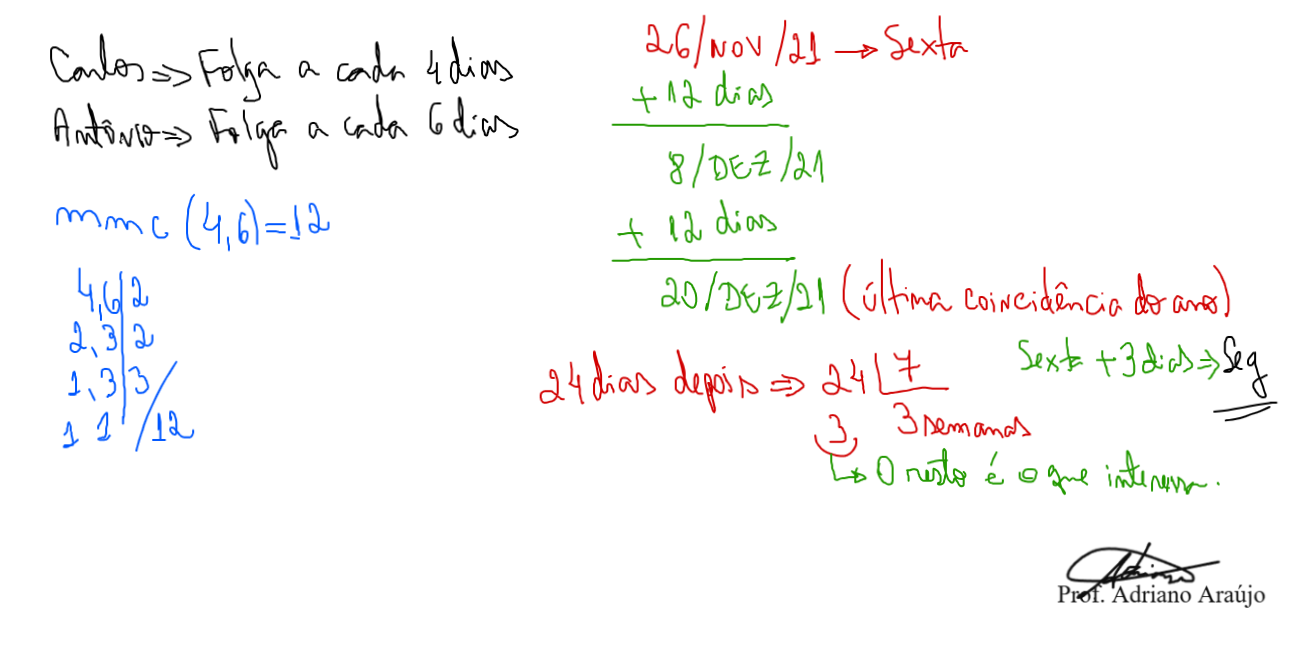 Carlos => Folga a cada 4 dias
Antônio => Folga a cada 6 dias
mmc (4,6) = 12
4,6|2
2,3|2
1,3|3
1 1 /12
26/NOV/21 → Sexta
+12 dias
8/DEZ/21
+ 12 dias
20/DEZ/21 (última coincidência do ano)
24 dias depois => 24 | 7
3 3 semanas
↳ O resto é o que interessa.
Sexta + 3 dias => Seg
Prof. Adriano Araújo